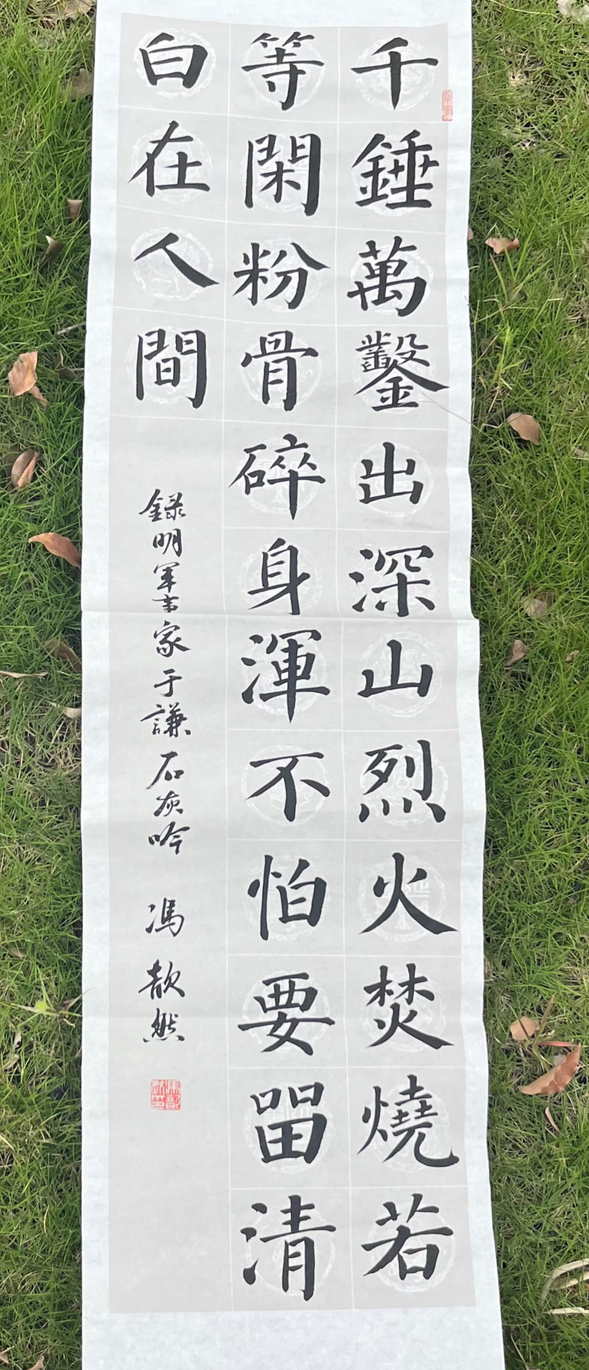 千錘萬鑿出深山烈火焚燒若
等閑粉骨碎身渾不怕要畱清
白在人間
録明軍事家于謙石灰吟 馮歆然